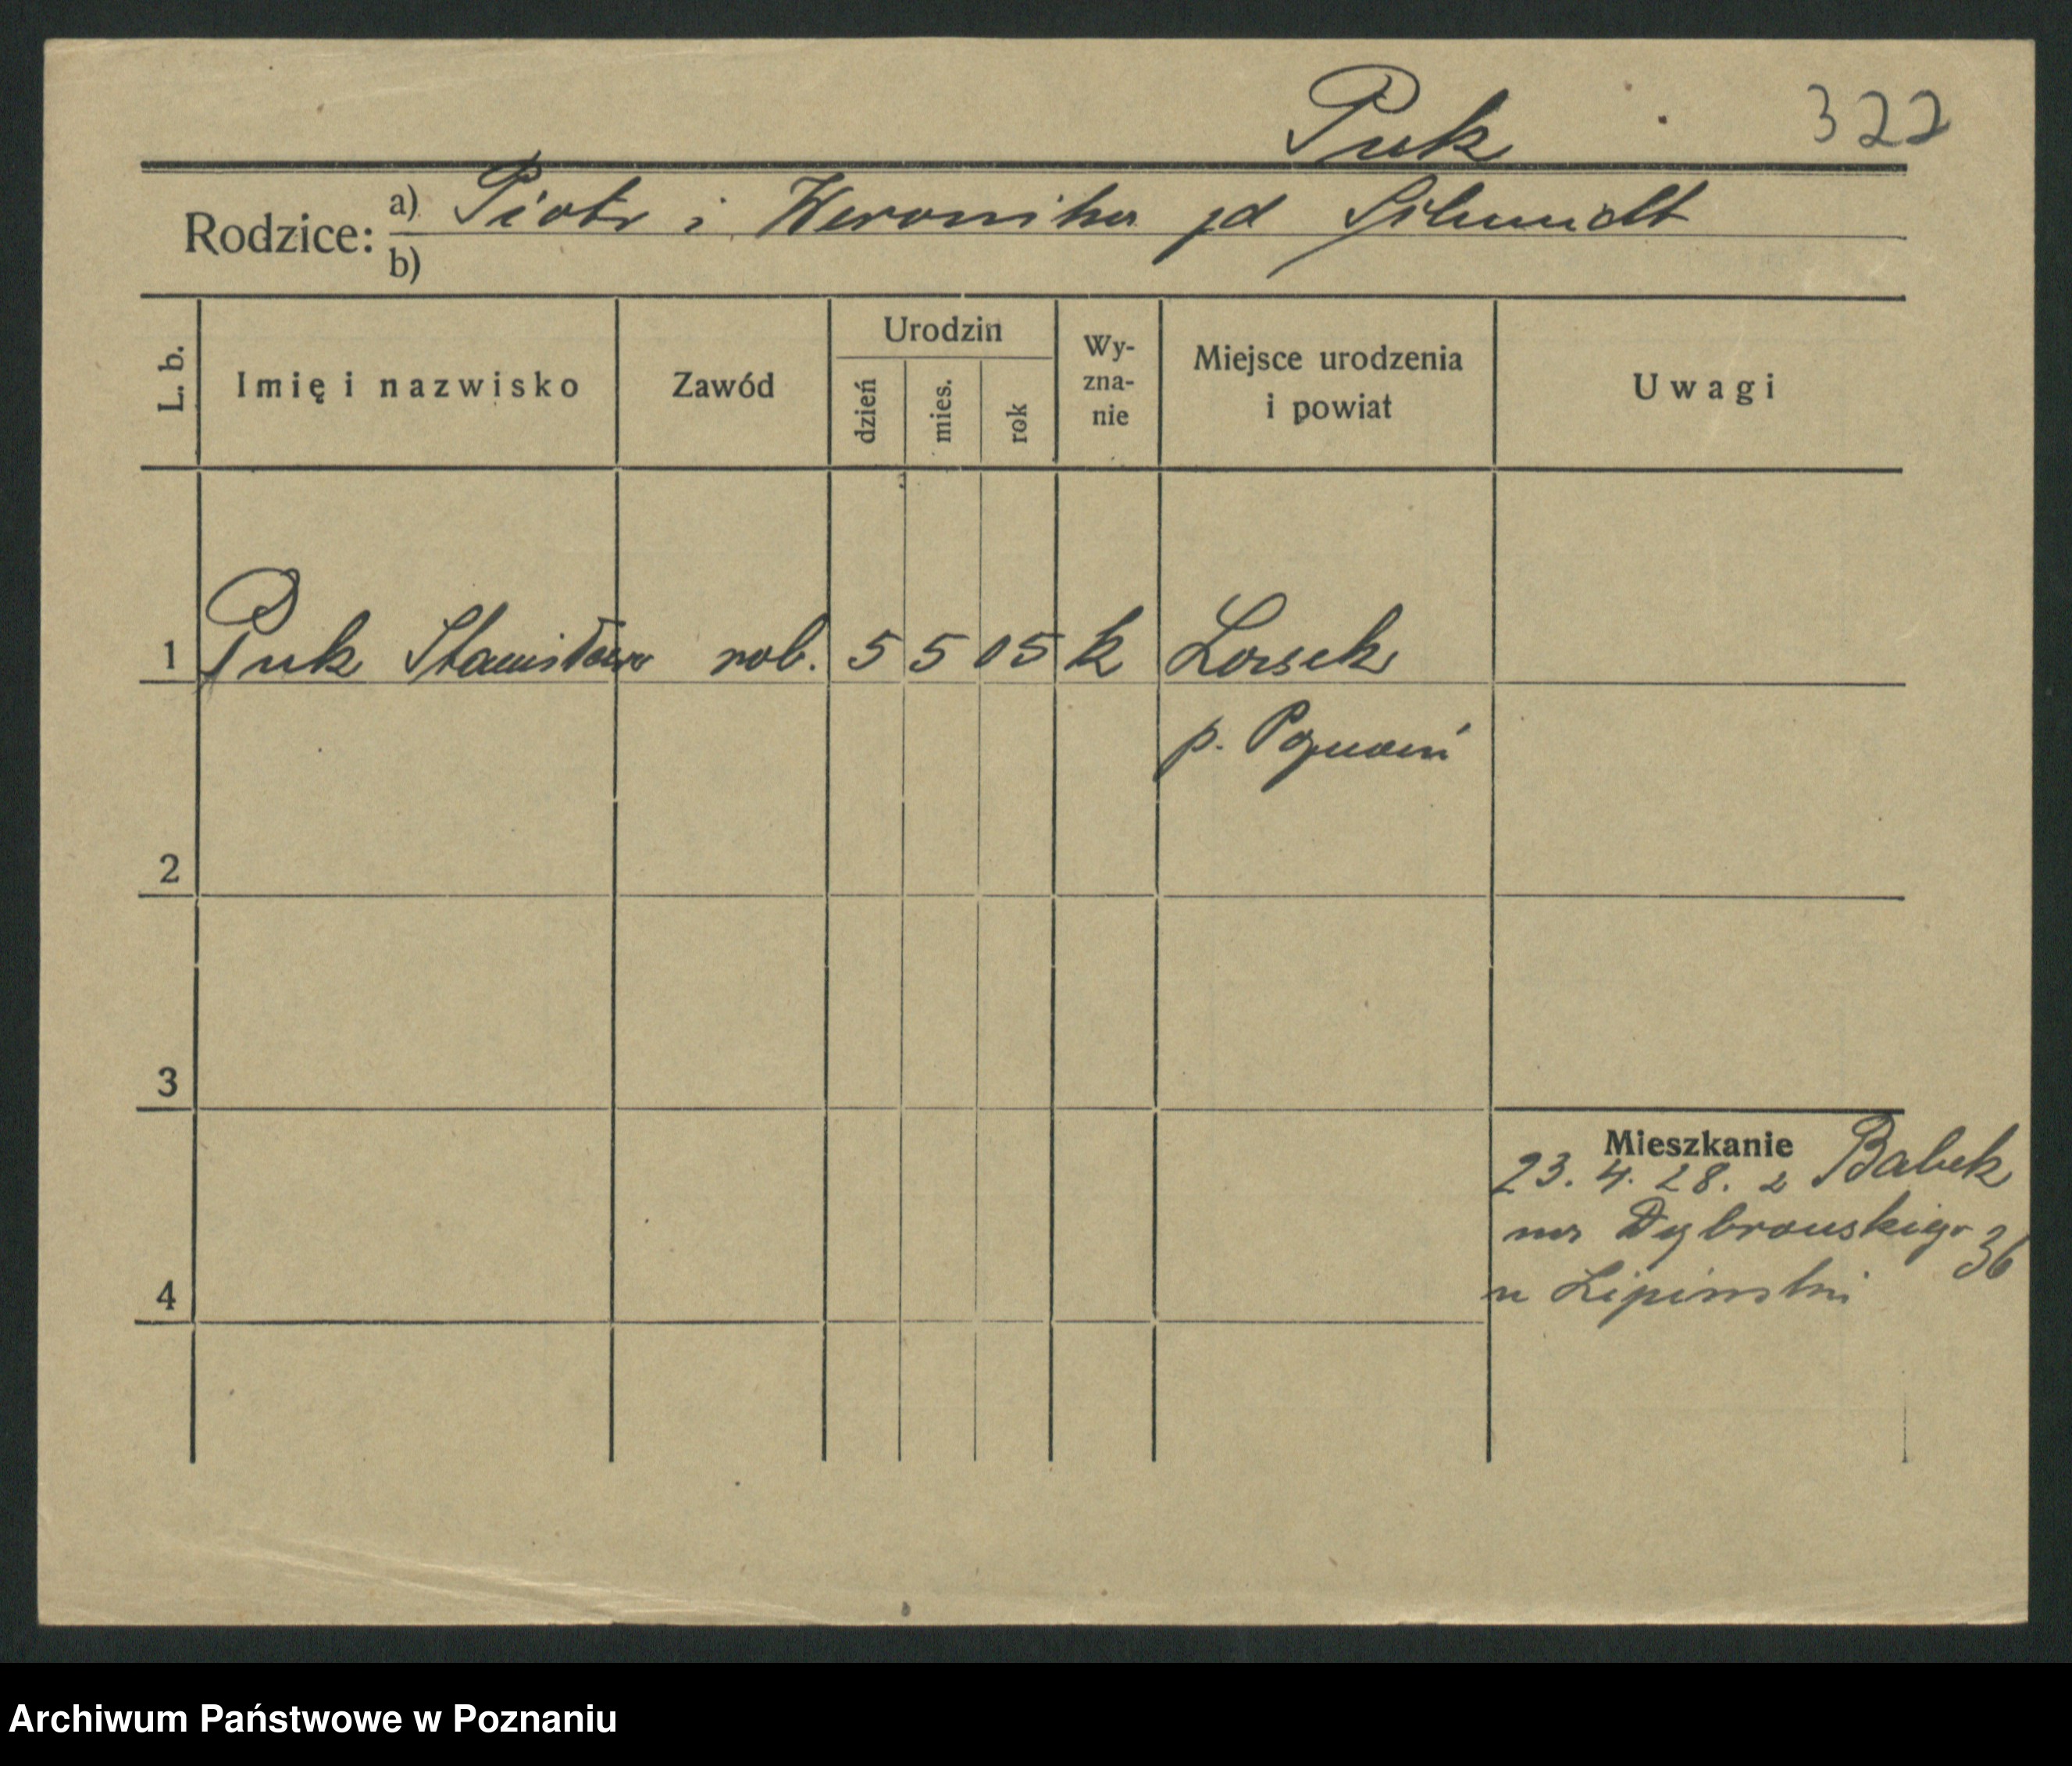 Puk 322
Rodzice: a) Piotr i Weronika zd Schmidt
b)
L. b. Imię i nazwisko Zawód Urodzin dzień mies. rok Wy-zna-nie Miejsce urodzenia i powiat Uwagi
1 Puk Stanisława rob. 5 5 05 k Lassek
p. Poznań
2
3
Mieszkanie
23. 4. 28. z Babek
na Dąbrowskiego 36
4 u Lipiński
Archiwum Państwowe w Poznaniu